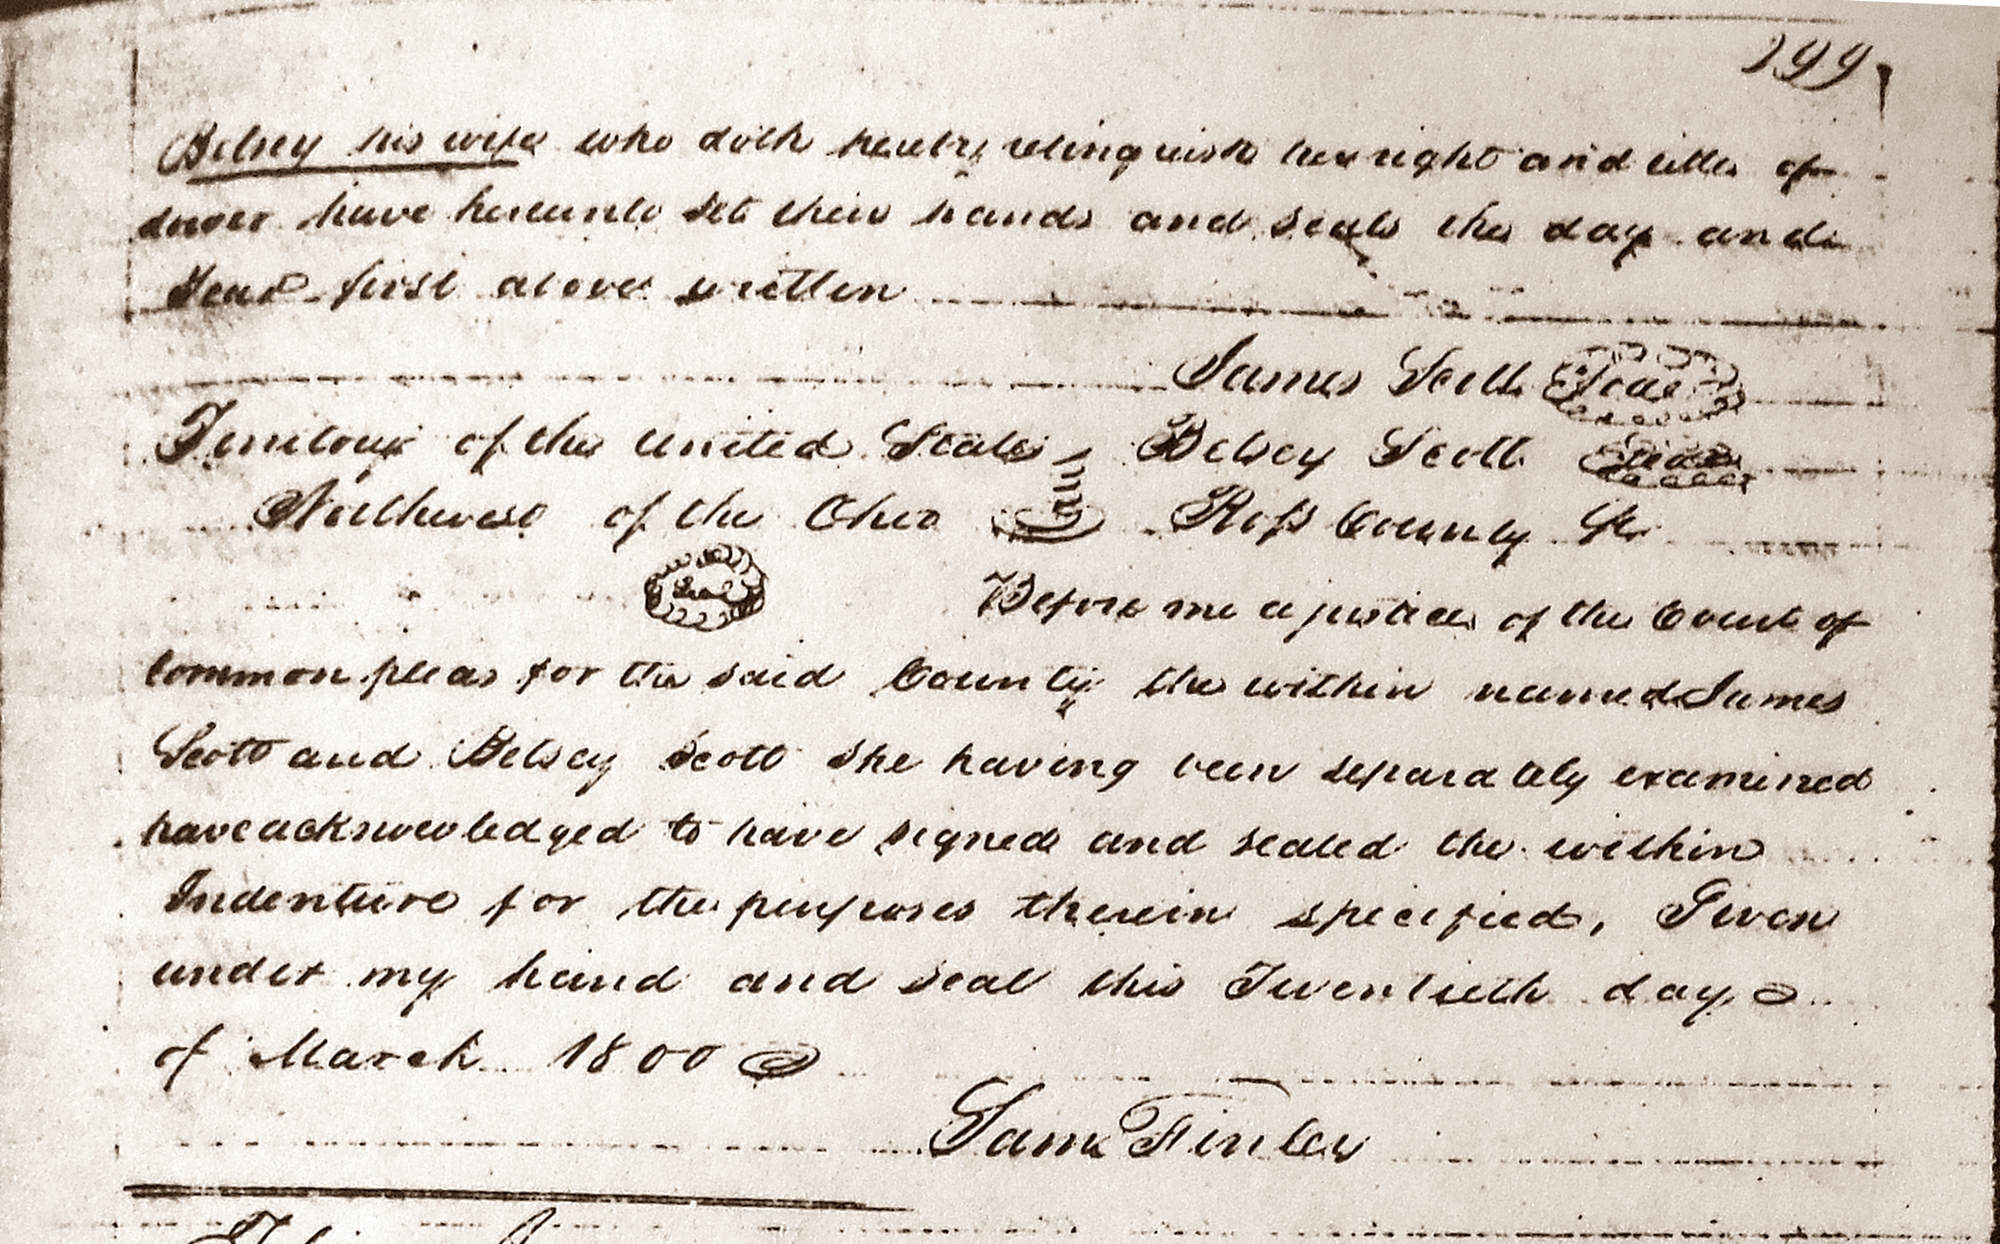 199
Betsey his wife who doth hereby relinquish her right and title of
dower have hereunto set their hands and seals the day and
Year first above written
James Scott Seal
Territory of the United States Betsey Scott Seal
Northwest of the Ohio Ross County Sc
Seal Before me a justice of the Court of
Common pleas for the said County the within named James
Scott and Betsey Scott she having been separately examined
have acknowledged to have signed and sealed the within
Indenture for the purposes therein specified, Given
under my hand and seal this Twentieth day
of March 1800
Saml Finley